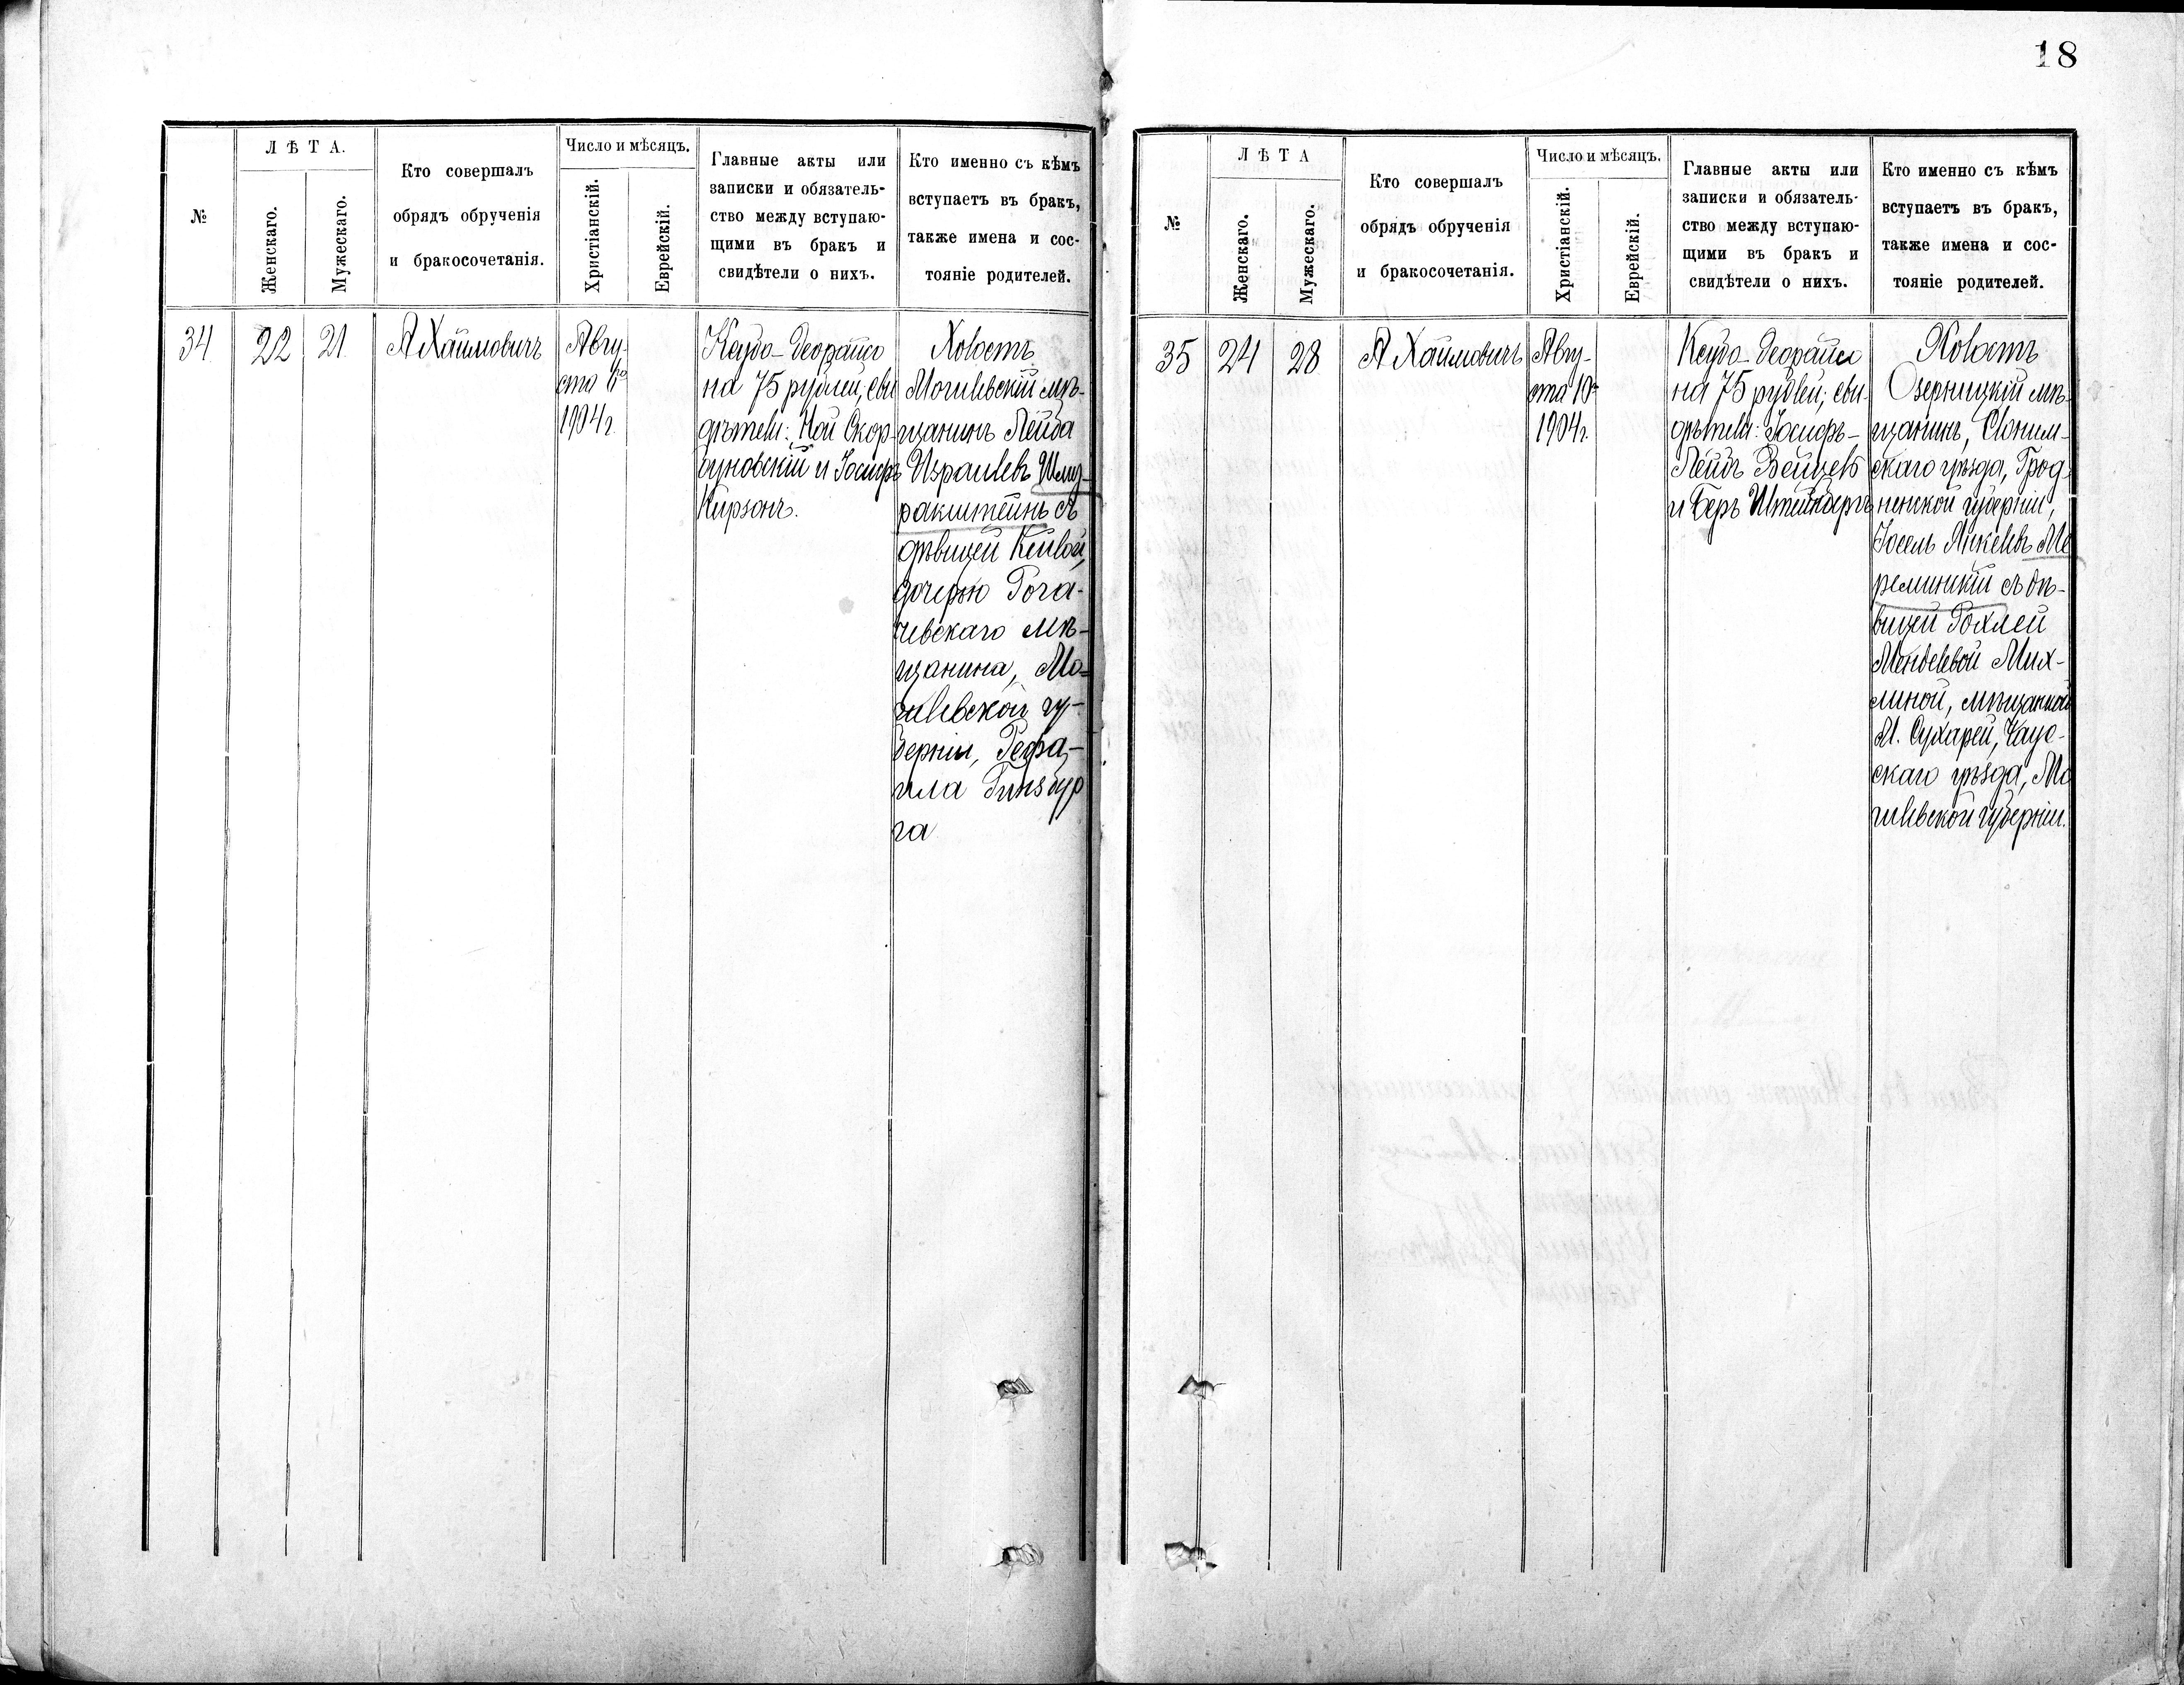 18
№
ЛѢТА.
Женскаго.
Мужескаго.
Кто совершалъ
обрядъ обрученія
и бракосочетанія.
Число и мѣсяцъ.
Христіанскій.
Еврейскій.
Главные акты или
записки и обязатель-
ство между вступаю-
щими въ бракъ и
свидѣтели о нихъ.
Кто именно съ кѣмъ
вступаетъ въ бракъ,
также имена и сос-
тояніе родителей.
34
22
21
А Хаймовичъ
Авгу-
ста
1904 г.
Ксубо-деорайсо
на 75 рублей; сви
дѣтели: Ной Скор-
буновскій и Іосифъ
Кирзонъ.
Холостъ
Могилевскій мѣ-
щанинъ Лейба
Израилевъ Шму-
ракштейнъ съ
дѣвицей Кейлой,
дочерью Рога-
чевскаго мѣ-
щанина, Мо-
гилевской гу-
берніи, Рефа-
ила Гинзбур
га
№
ЛѢТА
Женскаго.
Мужескаго.
Кто совершалъ
обрядъ обрученія
и бракосочетанія.
Число и мѣсяцъ.
Христіанскій.
Еврейскій.
Главные акты или
записки и обязатель-
ство между вступаю-
щими въ бракъ и
свидѣтели о нихъ.
Кто именно съ кѣмъ
вступаетъ въ бракъ,
также имена и сос-
тояніе родителей.
35
24
28
А Хаймовичъ
Авгу-
ста 10го
1904 г.
Ксубо-деорайсо
на 75 рублей; сви-
дѣтели: Іосифъ-
Лейбъ Зейцевъ
и Беръ Штейнбергъ
Холостъ
Озерницкій мѣ-
щанинъ, Слоним-
скаго уѣзда, Грод-
ненской губерніи,
Іосель Янкелевъ Ме
реминскій съ дѣ-
вицей Рохлей
Менделевой Мих-
линой, мѣщанкой
М. Сухарей, Чаус-
скаго уѣзда, Мо
гилевской губерніи.